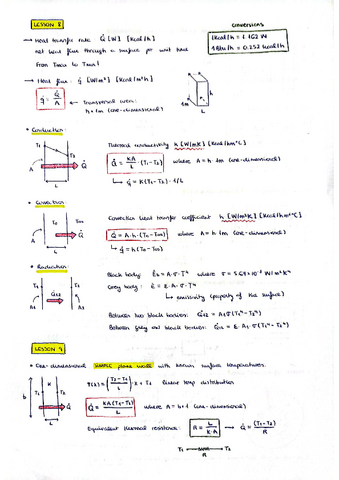 LESSON 8
CONVERSIONS
1 Kcal/h = 1.162 W
1 Btu/h = 0.252 Kcal/h
→ Heat transfer rate Q̇ [W] [Kcal/h]
net heat flux through a surface per unit time
from Tmax to Tmin!
→ Heat flux: q̇ [W/m²] [Kcal/m²h]
q̇ = Q̇/A → Transversal area:
h × 1m (one-dimensional)
1m
h
• Conduction:
Thermal conductivity k [W/mK] [Kcal/hm°C]
Q̇ = KA/L (T₁-T₂) where A = h·1m (one-dimensional)
↳ q̇ = K(T₁-T₂)·1/L
T₁
T₂
Q̇
L
• Convection:
Convection heat transfer coefficient h [W/m²K] [Kcal/hm²°C]
Q̇ = A·h·(Tw-T∞) where A = h·1m (one-dimensional)
↳ q̇ = h(Tw-T∞)
• Radiation:
Black body: Ėb = A·σ·T⁴ where σ = 5.67×10⁻⁸ W/m²K⁴
Grey body: Ė = ε·A·σ·T⁴
↳ emissivity (property of the surface)
Between two black bodies: Q̇₁₂ = A₁σ(T₁⁴-T₂⁴)
Between grey and black bodies: Q̇₁₂ = ε·A₁σ(T₁⁴-T₂⁴)
T₁
T₂
Q̇₁₂
A₁
A₂
LESSON 9
• One-dimensional SIMPLE plane wall with known surface temperatures
T(x) = (T₂-T₁/L)·x + T₁ linear temp distribution
Q̇ = KA(T₁-T₂)/L where A = b·1 (one-dimensional)
Equivalent thermal resistance: R = L/K·A → Q̇ = (T₁-T₂)/R
T₁ R T₂
b
T₁
K
T₂
Q̇
L